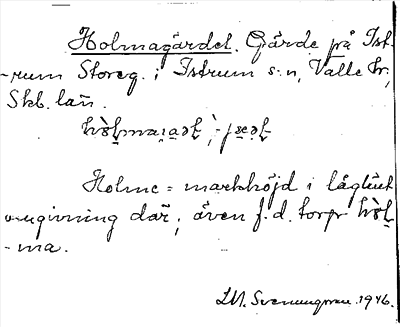 Holmagärdet. Gärde på Ist-
rum Storeg. i Istrum s:n, Valle hr,
Skb. län.
Holme = markhöjd i låglänt
omgivning där, även f.d. torp
-ma.
Svenungsson 1946.